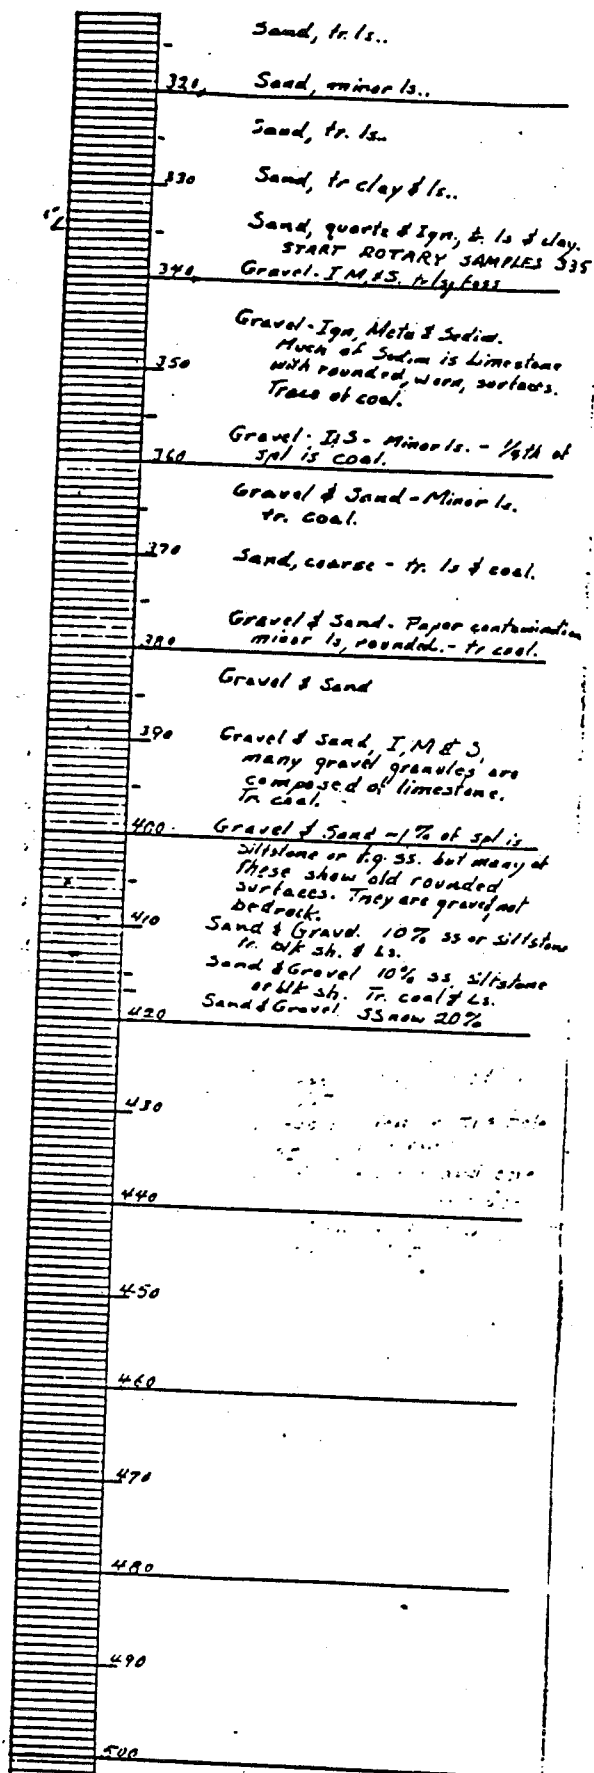 Sand, tr. ls..
320
Sand, minor ls..
Sand, tr. ls..
330
Sand, tr clay & ls..
Sand, quartz & Ign, tr. ls & clay.
START ROTARY SAMPLES 335
340
Gravel - I M, & S.
Gravel - Ign, Meta & Sedim.
Much of Sedim is Limestone
350
with rounded, worn, surfaces.
Trace of coal.
Gravel - I&S - Minor ls. -
360
spl is coal.
Gravel & Sand - Minor ls.
tr. coal.
370
Sand, coarse - tr. ls & coal.
Gravel & Sand - Paper contamination
380
minor ls, rounded. - tr coal.
Gravel & Sand
390
Gravel & Sand, I, M & S,
many gravel granules are
composed of limestone.
Tr. coal.
400
Gravel & Sand - 1% of spl is
Siltstone or f.g. ss. but many of
these show old rounded
surfaces. They are gravel, not
bedrock.
410
Sand & Gravel. 10% ss or siltstone
tr. blk sh. & Ls.
Sand & Gravel 10% ss, siltstone
or blk sh. Tr. coal & Ls.
420
Sand & Gravel. SS now 20%
430
440
450
460
470
480
490
500